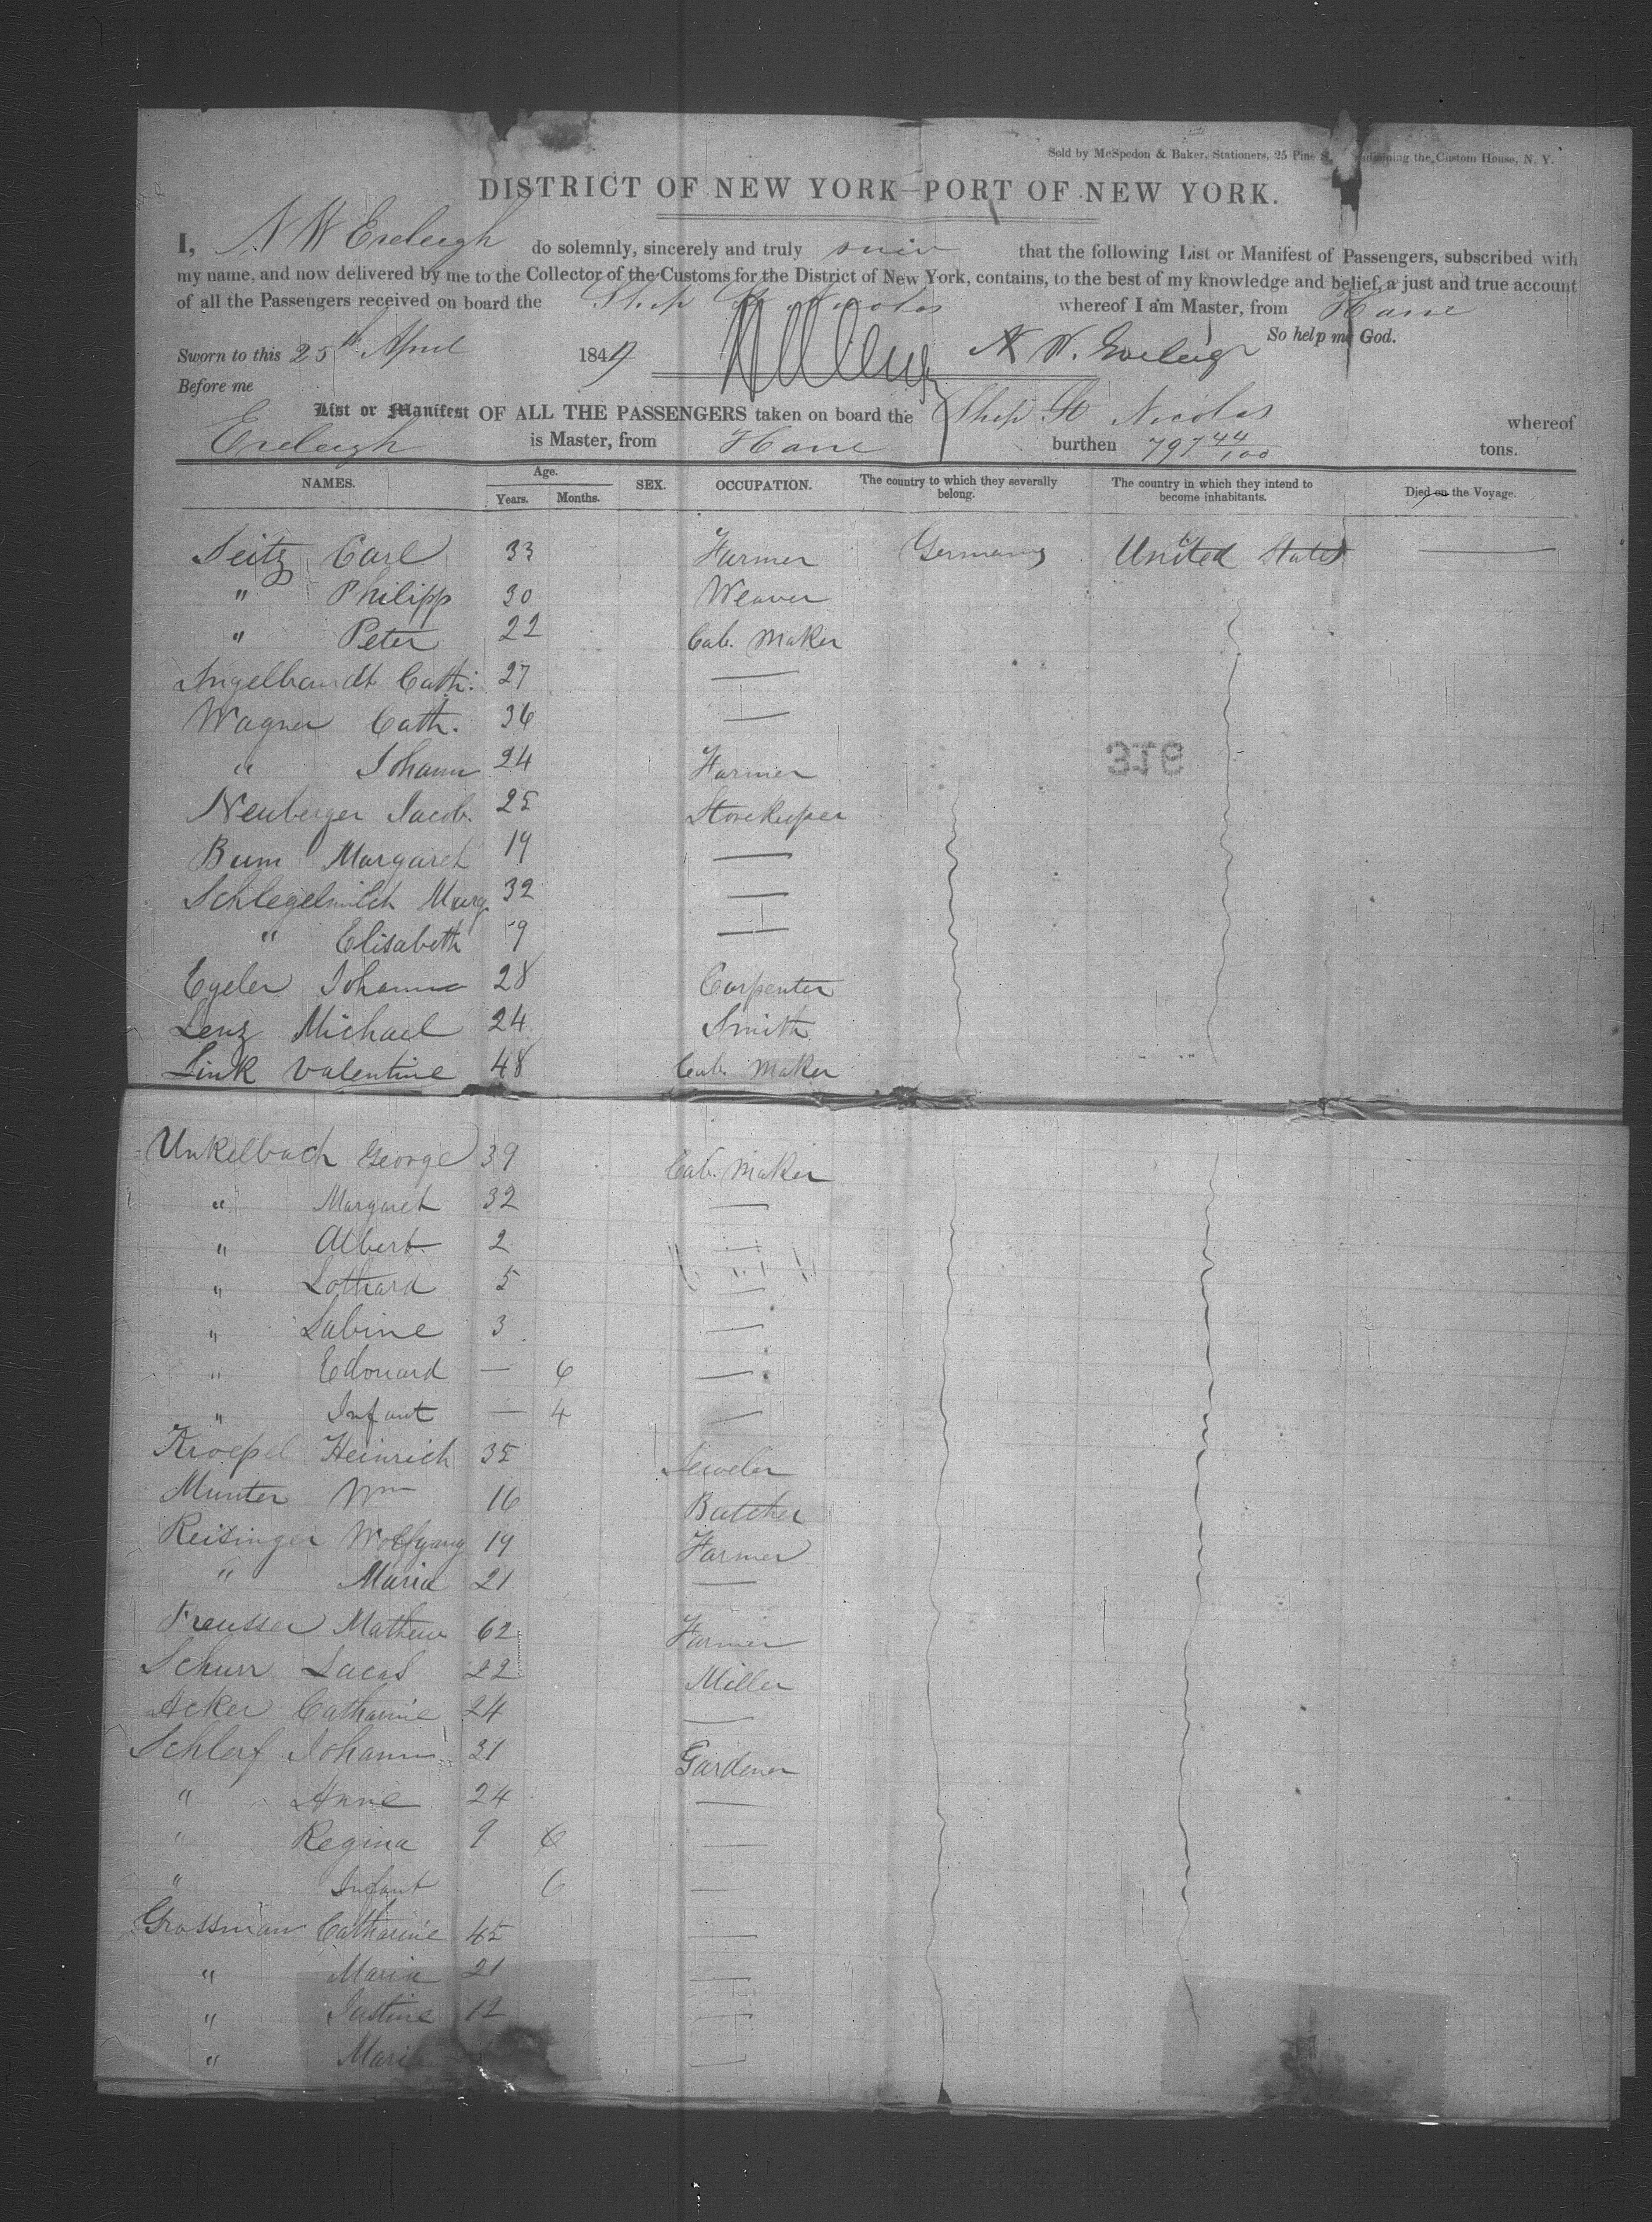 Sold by McSpedon & Baker, Stationers, 25 Pine S adjoining the Custom House, N. Y.
DISTRICT OF NEW YORK—PORT OF NEW YORK.
I, N W Eveleigh do solemnly, sincerely and truly that the following List or Manifest of Passengers, subscribed with
my name, and now delivered by me to the Collector of the Customs for the District of New York, contains, to the best of my knowledge and belief, a just and true account
of all the Passengers received on board the Ship St Nicolas whereof I am Master, from Havre
So help me God.
Sworn to this 25th April 1849 N W. Eveleigh
Before me
List or Manifest OF ALL THE PASSENGERS taken on board the Ship St Nicolas whereof
Eveleigh is Master, from Havre burthen 797 44/100 tons.
NAMES. Age. Years. Months. SEX. OCCUPATION. The country to which they severally belong. The country in which they intend to become inhabitants. Died on the Voyage.
Seitz Carl 33 Farmer Germany United States —
" Philipp 30 Weaver
" Peter 22 Cab. Maker
Ingelbrandt Cath. 27 —
Wagner Cath. 36 —
" Johann 24 Farmer
916
Neuberger Jacob. 25 Storekeeper
Bum Margaret 19 —
Schlegelmilch Marg. 32 —
" Elisabeth 9 —
Egeler Johann 28 Carpenter
Lenz Michael 24 Smith
Link Valentine 48 Cab. Maker
Unkelbach George 39 Cab. Maker
" Margaret 32 —
" Albert 2 —
" Lothard 5 —
" Sabine 3 —
" Edouard — 6 —
" Infant — 4 —
Kroepel Heinrich 35 Jeweler
Munter Wm 16 Butcher
Reisinger Wolfgang 19 Farmer
" Maria 21 —
Preusser Mathew 62 Farmer
Schurr Lucas 22 Miller
Acker Catharine 24 —
Schlorf Johann 31 Gardener
" Anne 24 —
" Regina 9 6 —
" Infant 6 —
Grossman Catharine 45 —
" Maria 21 —
" Justine 12 —
" Maria —